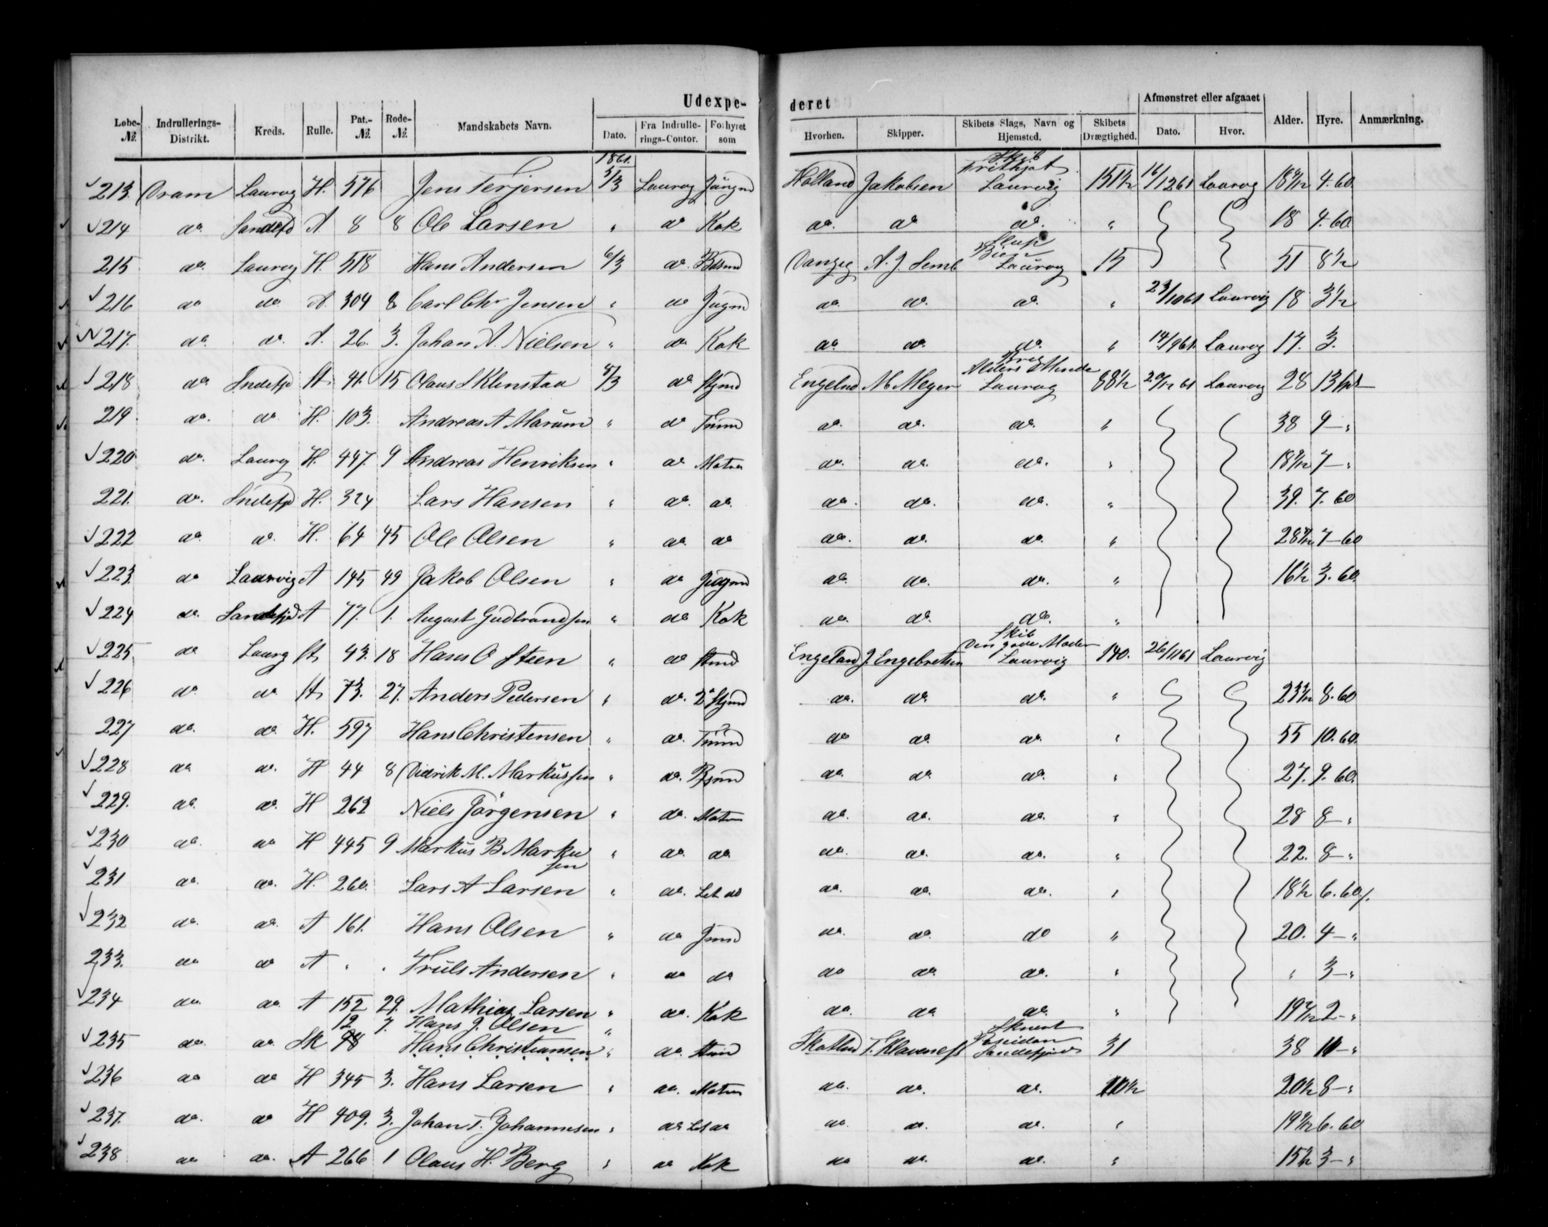 Udexpederet
Løbe-№ Indrullerings-Distrikt. Kreds. Rulle. Pat.-№ Rode-№ Mandskabets Navn. Dato. Fra Indrullerings-Contor. Forhyret som Hvorhen. Skipper. Skibets Slags, Navn og Hjemsted. Skibets Drægtighed. Afmønstret eller afgaaet Dato. Hvor. Alder. Hyre. Anmærkning.
1861
213. Dram Laurvg H. 576 Jens Terjersen 5/3 Laurvg Jungmd Holland Jakobsen Skib Frithjof Laurvig 151½ Laurvg 4.60
214 do Sandefjd A 8 8 Ole Larsen " do Kok do. do do. " 18 4.60
215 do. Laurvg H. 518 Hans Andersen 6/3 do. A. J. Semb Slup Laurvg 15 51 8½
216 do do A 304 8 Carl Chr Jensen " do Jugmd do. do. do. " 23/10 61 Laurvig 18 3½
217. do. do. A. 26. 3. Johan A Nielsen " do Kok do. do. do. " 14/9 61. Laurvg 17. 3.
218 do Sndefjd A. 41. 15 Olaus S Klinstaa do Engelnd M. Meyer Brig Laurvg 88½ Laurvg 28
219 do. do H. 103. Andreas A Marum " do Tmmd do. do. do. " 38 9 "
220 do. Laurvg H. 447. 9 Andreas Henriksen " do Matrs do. do. do. " 7 "
221. do. Sndefjd H. 324 Lars Hansen " do. do. do. do. do. " 39. 7. 60
222 do. do. H. 64 45 Ole Olsen " do do do. do. do. " 7 60
223. do Laurvig A 145 49 Jakob Olsen " do Jugmd do. do. do. " 16½ 3. 60
224 do. Sandefjd A 77. 1. August Gudbrandsen " do Kok do. do. do. "
225. do Laurg A 43. 18 Hans O Steen " do Stmd Engeland J. Engebretsen Skib Den gode Moder Laurvig 140. 26/11 61 Laurvig
226 do do A 73. 27. Anders Pedersen " do. do. do. do. " 8. 60
227 do. do H. 597 Hans Christensen " do. Tmmd do do. do. " 55 10. 60.
228 do do. H 44 8 Didrik M. Markussen " do. do. do. do. " 27. 9. 60.
229. do. do. H 263 Niels Jörgensen " do. Matrs do. do. do. " 28 8 "
230 do. do H 445 9 Markus B Markussen " do. do do. do. do. " 22. 8 "
231 do. do. H. 260. Lars A Larsen " do. Let do do. do. do. " 18½ 6. 60
232 do. do. A 161. Hans Olsen " do Jmd do. do. do " 20. 4 "
233. do do A " " Truls Andersen " do do do do do. " " 3 "
234 do. do A 152 29. Mathias Larsen " do. Kok do. do do. " 2 "
12 7. Hans J. Olsen "
235 do. do 98 Hans Christiansen " do. Stmd Skotlnd Skonert Poseidon Sandefjord 31 38 10 "
236 do do H 345 3. Hans Larsen " do. Matrs do. do. do. 20½ 8 "
237. do. do H 409. 3. Johan T. Johannesen " do Let do do do. do. " 19½ 6. 60
238 do do. A 266 1 Olaus H. Berg " do Kok do do. do. " 15½ 3 "